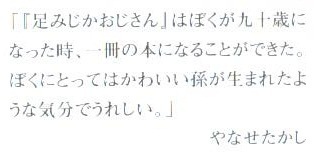 「『足みじかおじさん』はぼくが九十歳に
なった時、一冊の本になることができた。
ぼくにとってはかわいい孫が生まれたよ
うな気分でうれしい。」
やなせたかし